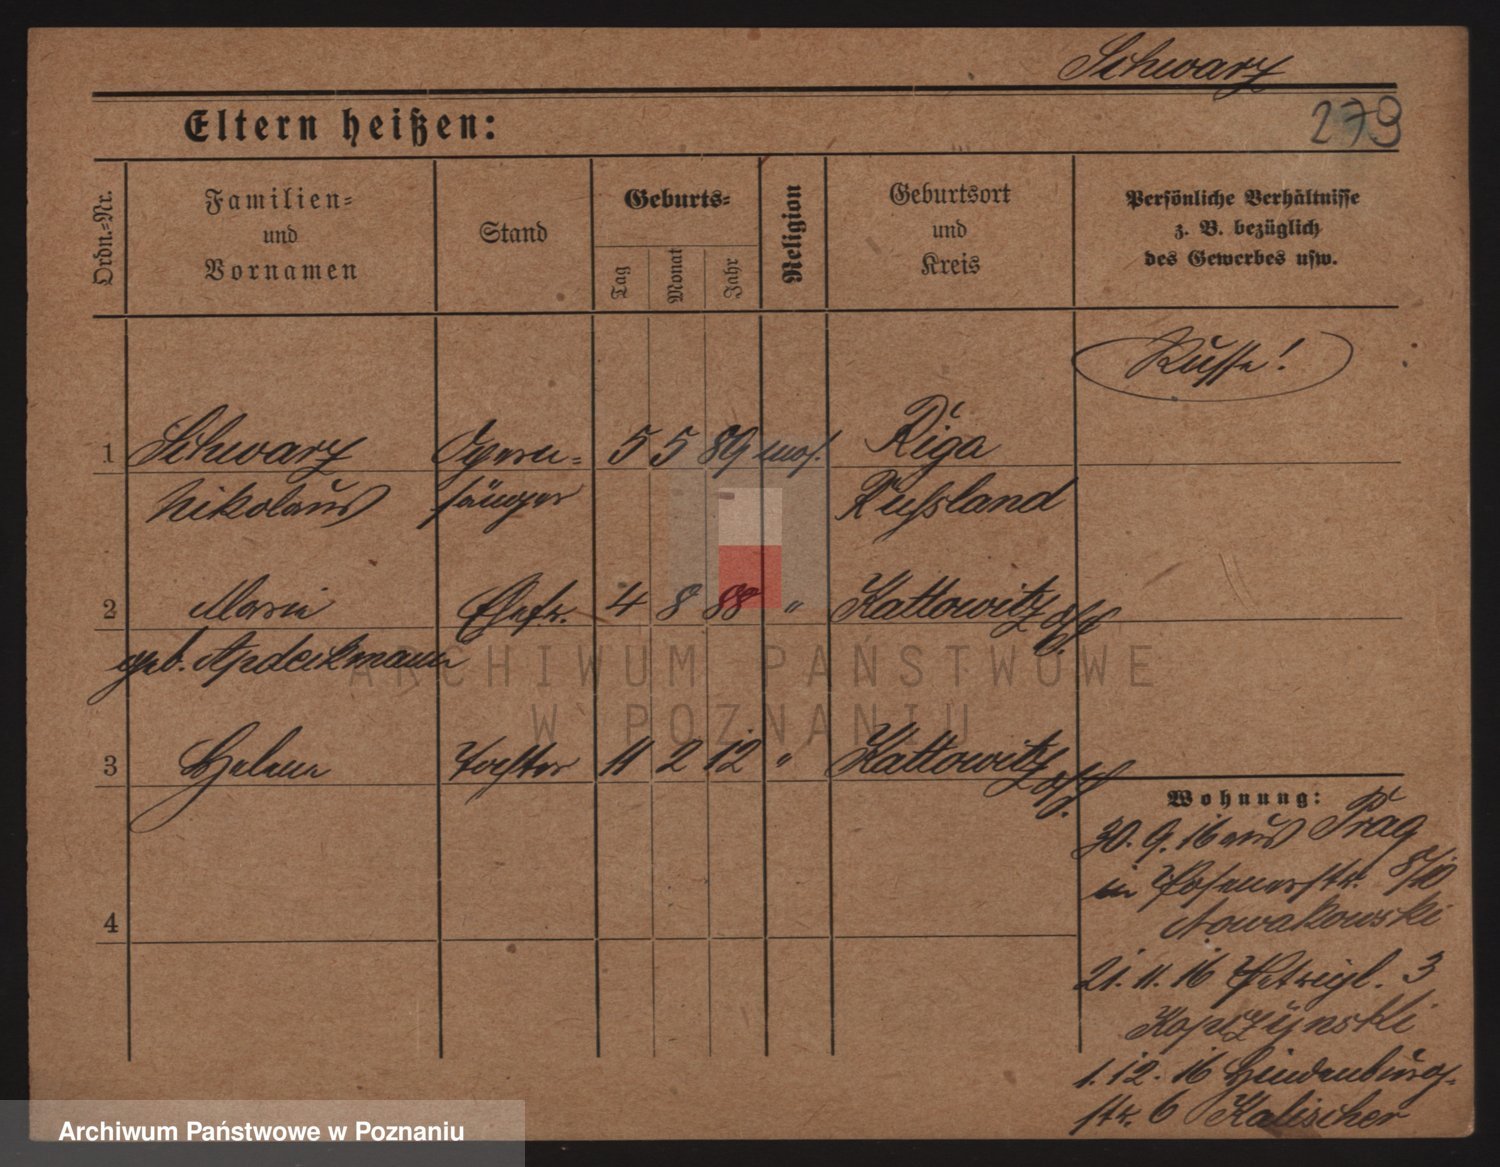 Schwarz
279
Eltern heißen:
Ordn.-Nr.
Familien-
und
Vornamen
Stand
Geburts-
Tag
Monat
Jahr
Religion
Geburtsort
und
Kreis
Persönliche Verhältnisse
z. B. bezüglich
des Gewerbes usw.
Russe!
1 Schwarz Opern- 5 5 89 mos. Riga
Nikolaus sänger Russland
2 Marie Ehefr. 4 8 88 " Kattowitz O/S.
geb.
3 Helene Tochter 11 2 12 " Kattowitz O/S.
4
Wohnung:
30. 9. 16 aus Prag
in Posenerstr.
Nowakowski
21. 11. 16 3
1. 12. 16 Hindenburg-
str. 6 Kalischer
ARCHIWUM PAŃSTWOWE
W POZNANIU
Archiwum Państwowe w Poznaniu